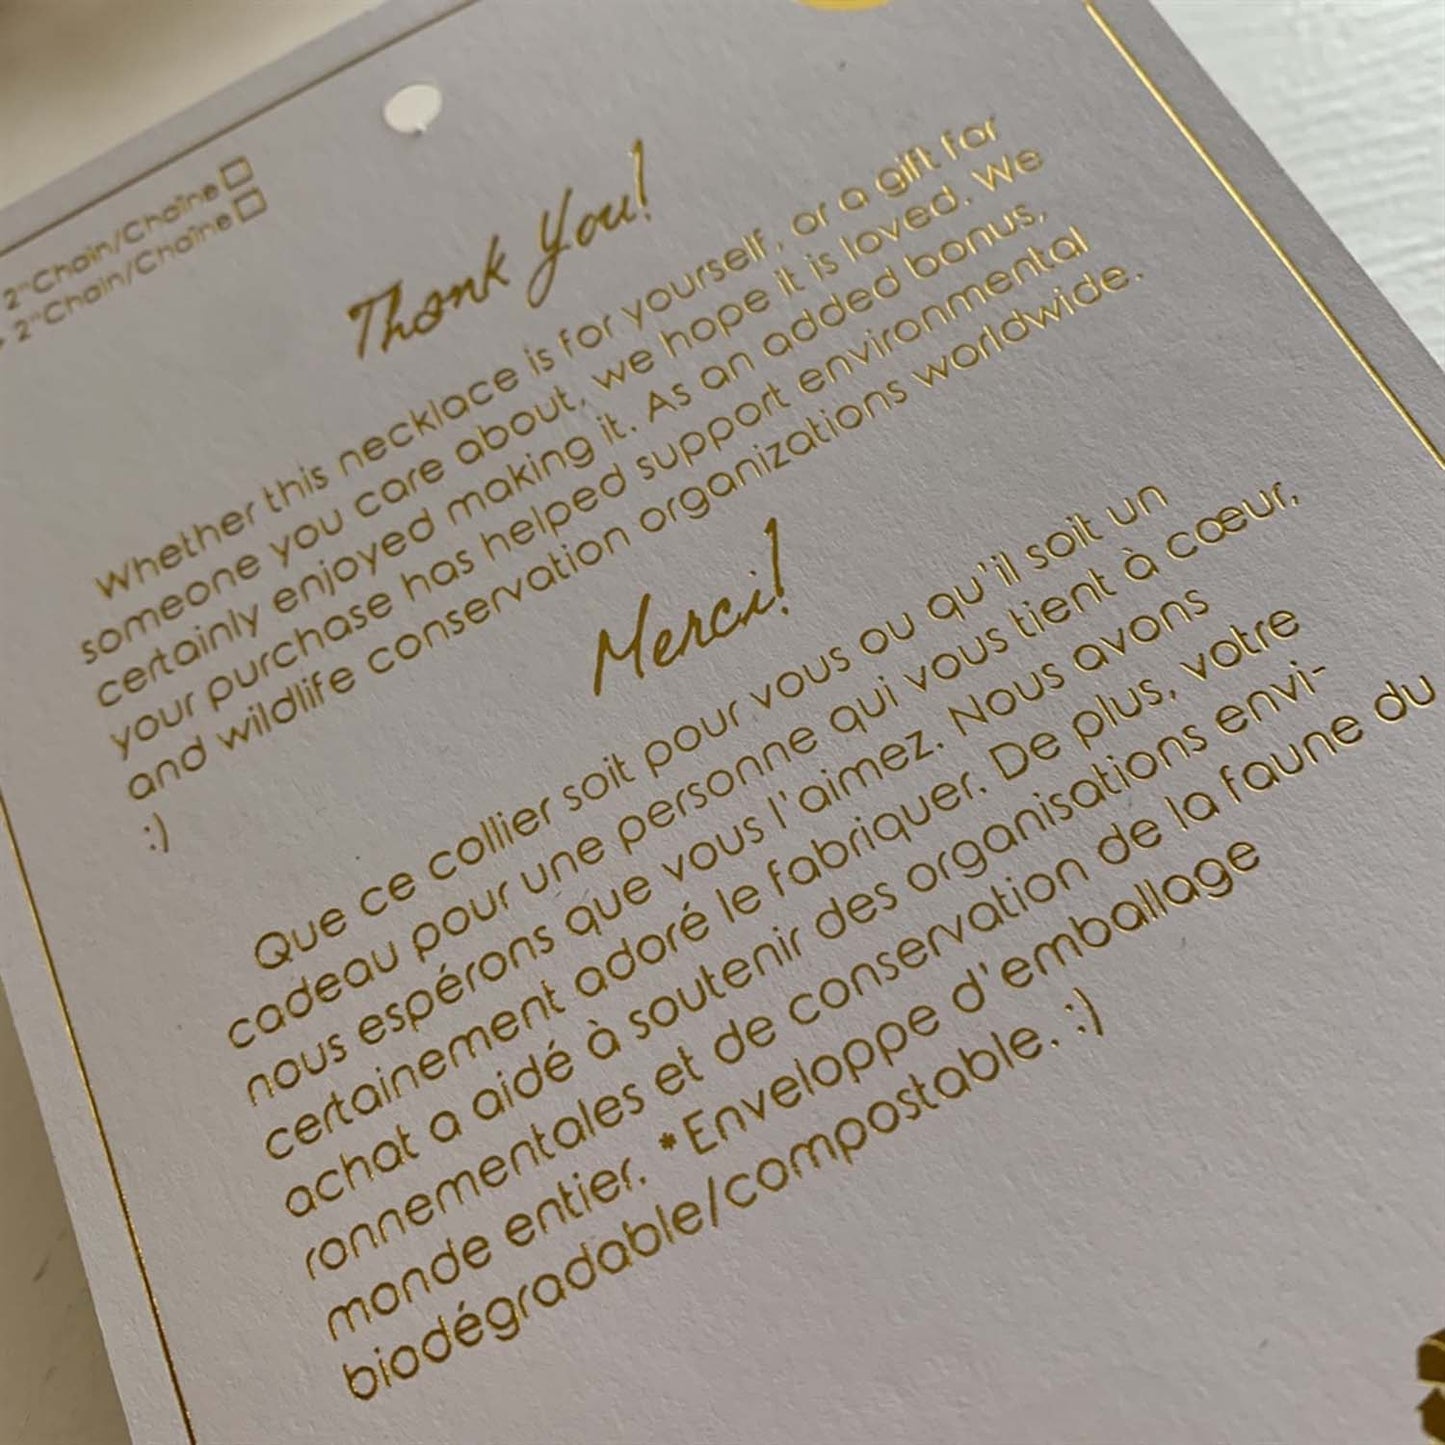 2" Chain/Chaîne
2" Chain/Chaîne
Thank You!
Whether this necklace is for yourself, or a gift for
someone you care about, we hope it is loved. We
certainly enjoyed making it. As an added bonus,
your purchase has helped support environmental
and wildlife conservation organizations worldwide.
:)
Merci!
Que ce collier soit pour vous ou qu'il soit un
cadeau pour une personne qui vous tient à cœur,
nous espérons que vous l'aimez. Nous avons
certainement adoré le fabriquer. De plus, votre
achat a aidé à soutenir des organisations envi-
ronnementales et de conservation de la faune du
monde entier. *Enveloppe d'emballage
biodégradable/compostable. :)